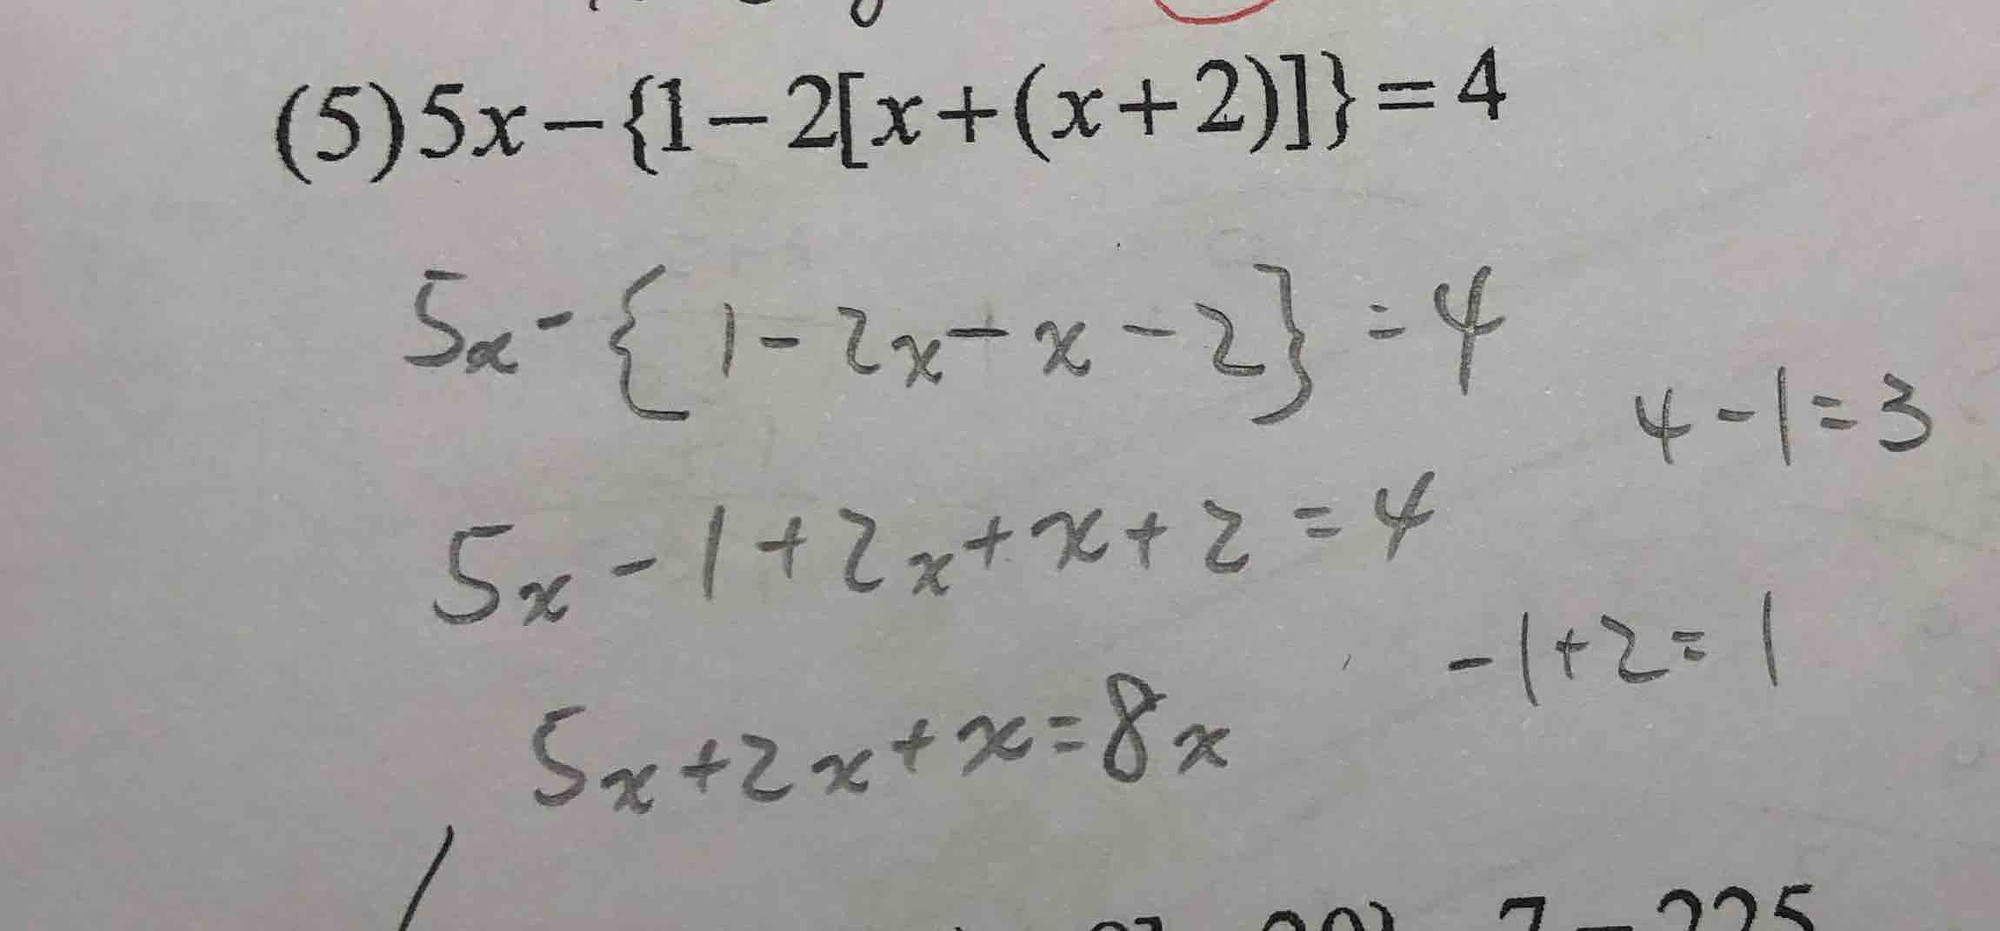 (5)5x-{1-2[x+(x+2)]}=4
5x-{1-2x-x-2}=4
4-1=3
5x-1+2x+x+2=4
-1+2=1
5x+2x+x=8x